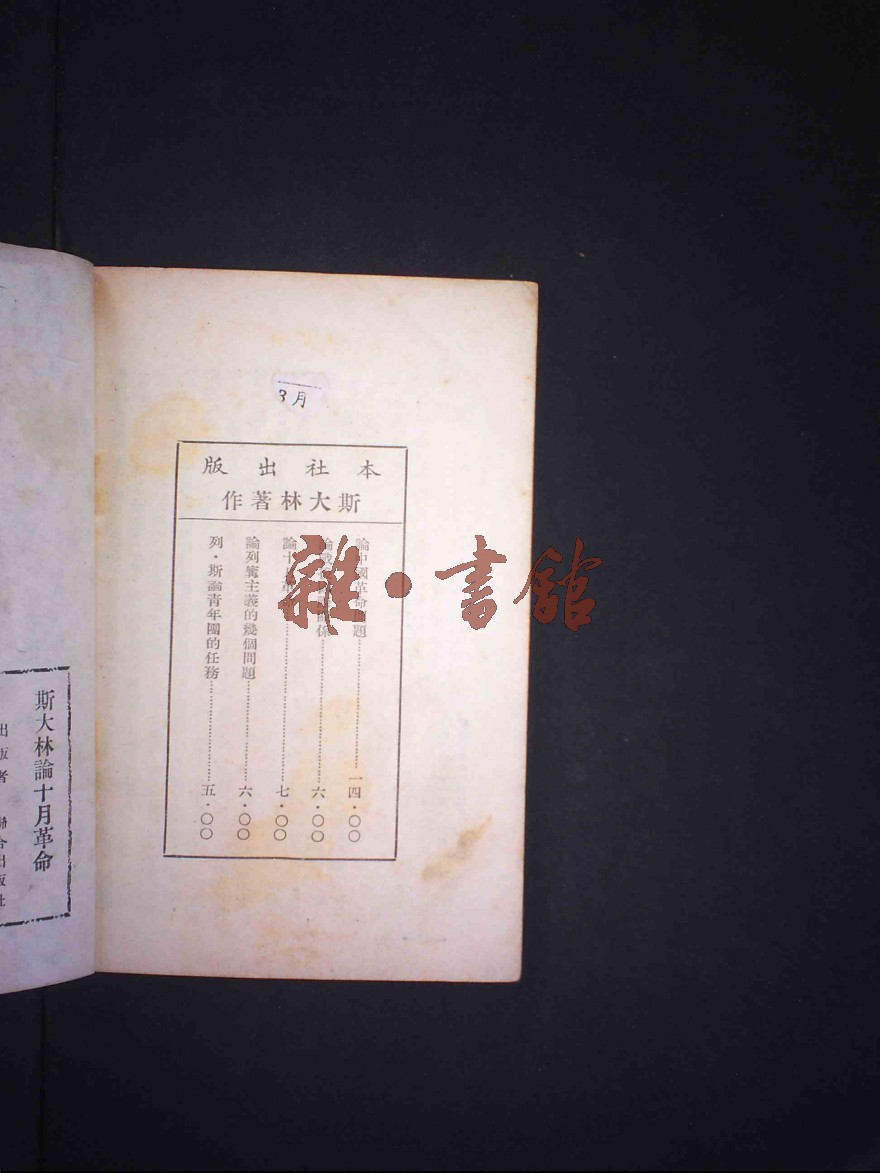 3月
本社出版
斯大林著作
論中國革命問題……一四・〇〇
論 係……六・〇〇
論十月革命……七・〇〇
論列寧主義的幾個問題……六・〇〇
列・斯論青年團的任務……五・〇〇
斯大林論十月革命
出版者 聯合出版社
雜・書館